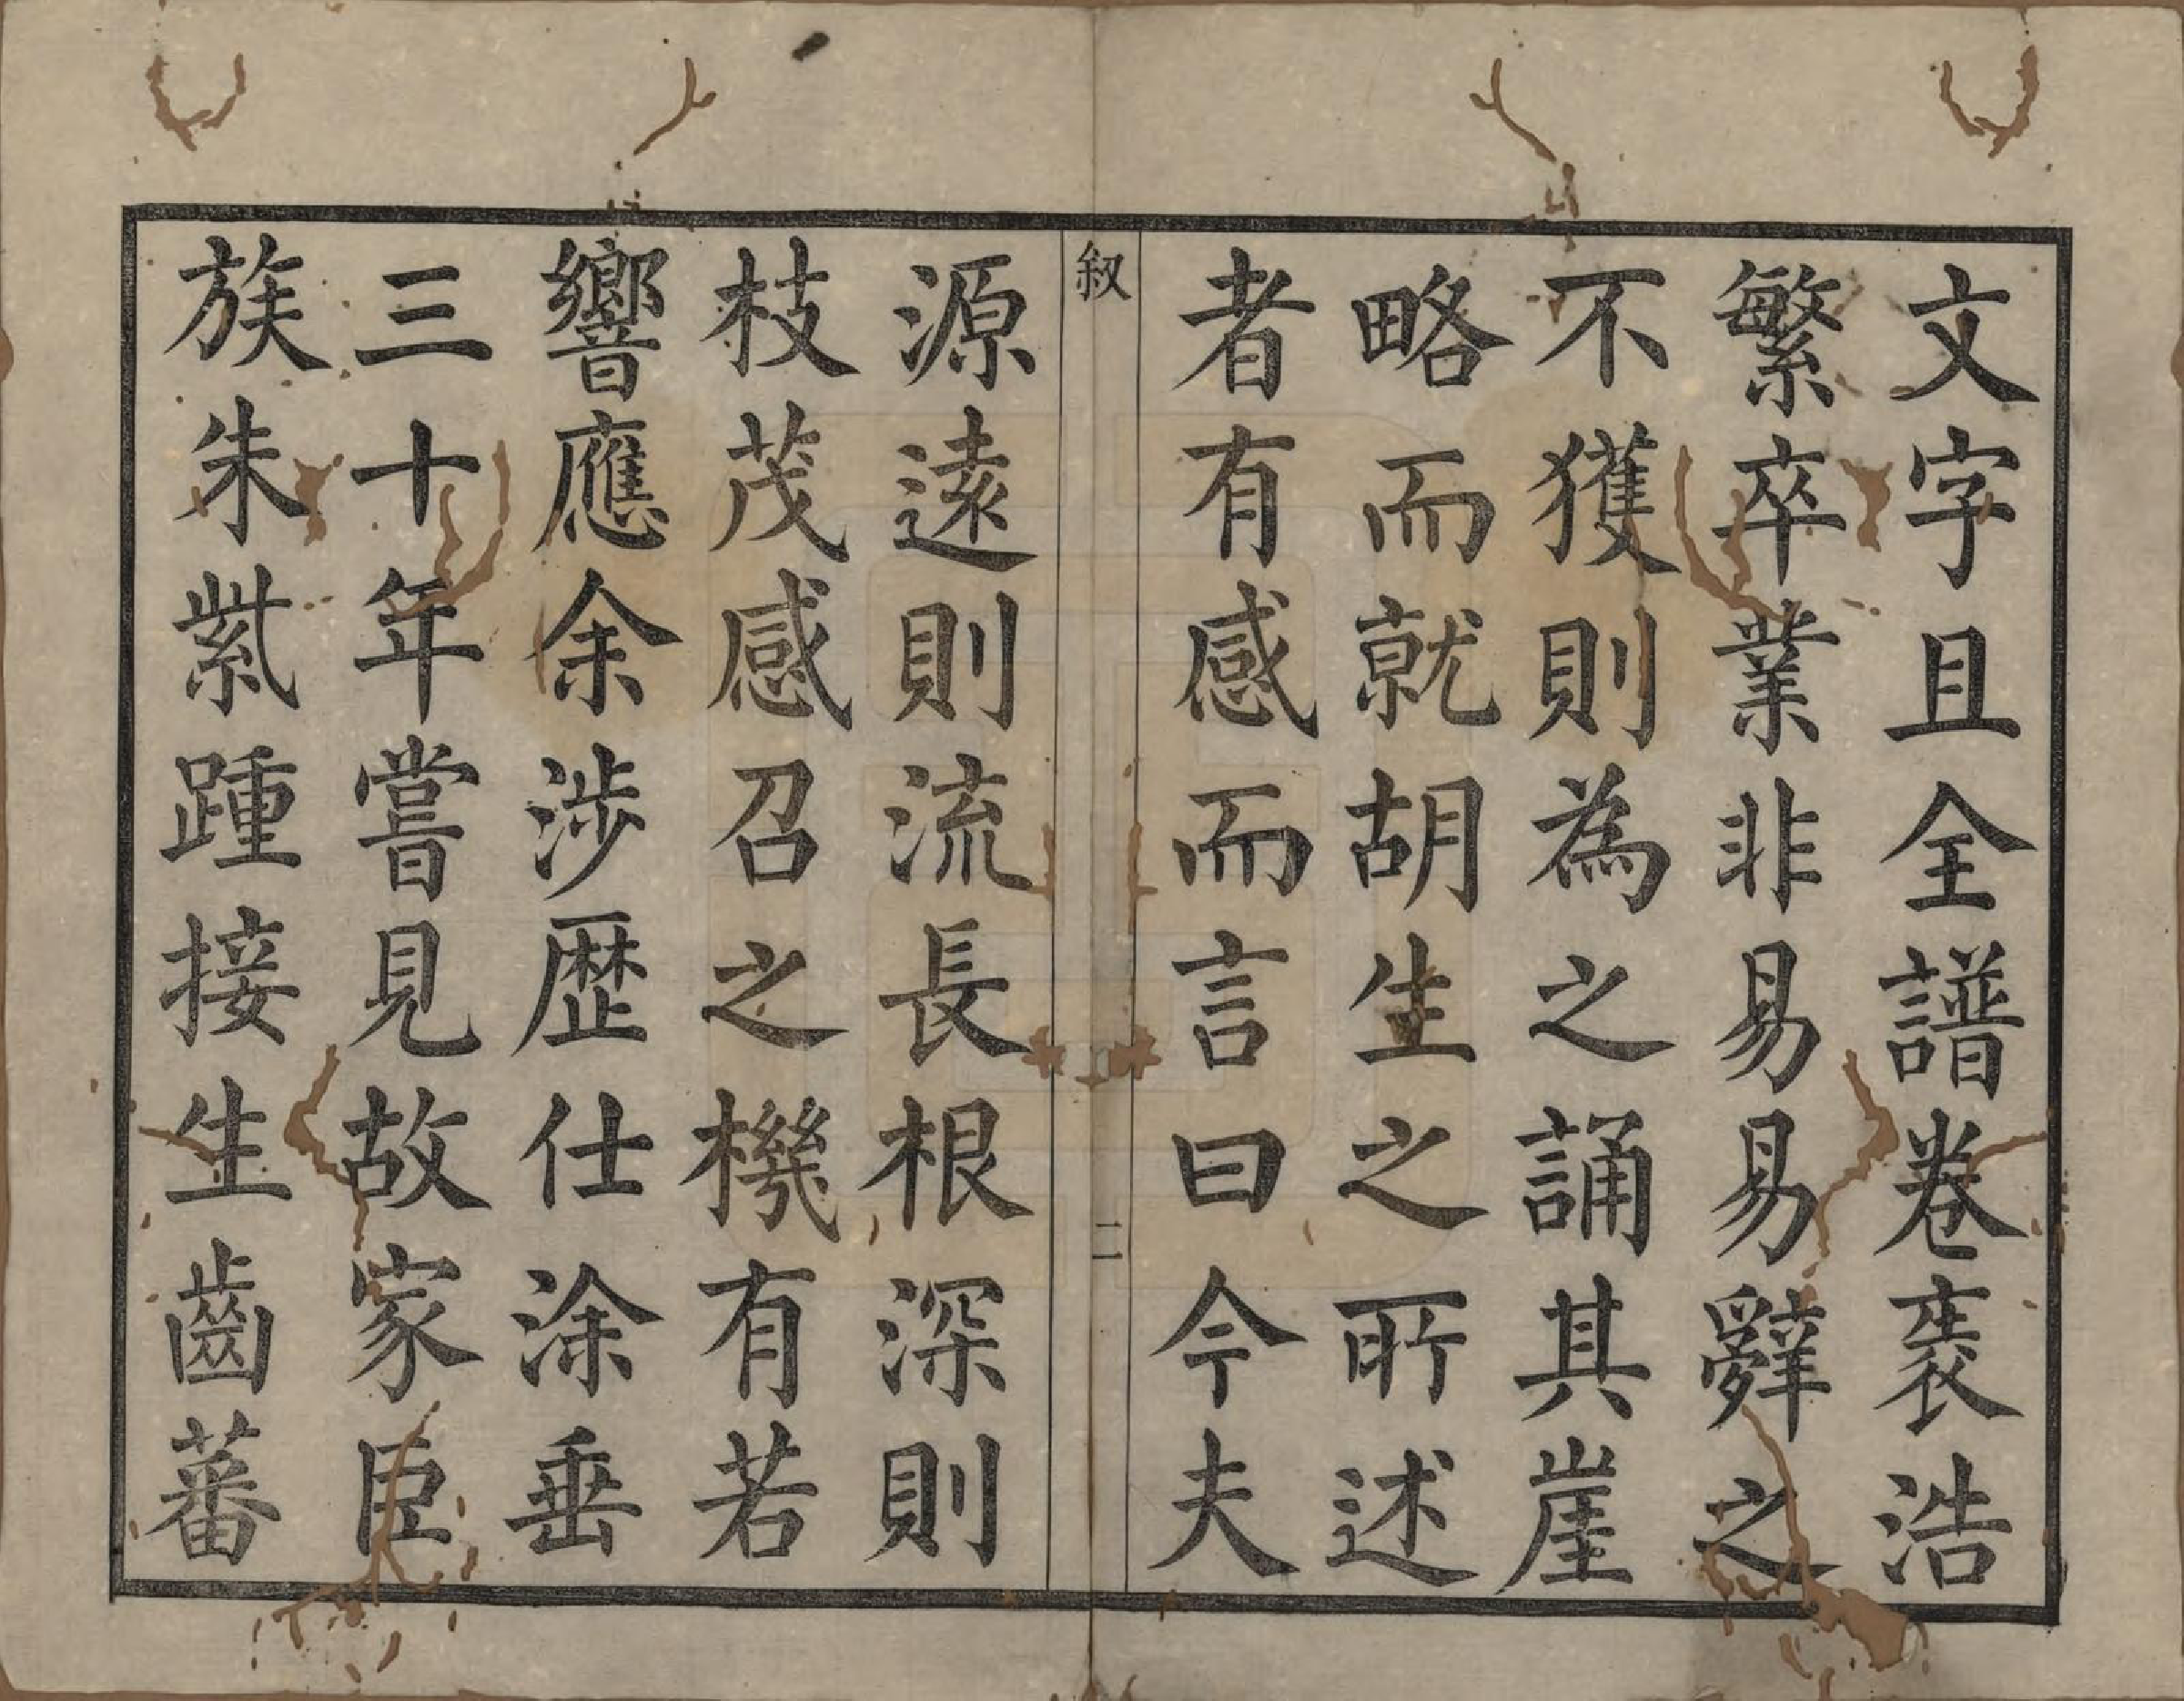 文字且全譜卷袠浩
繁卒業非易易辭之
不獲則為之誦其崖
略而就胡生之所述
者有感而言曰今夫
叙
二
源遠則流長根深則
枝茂感召之機有若
響應余涉歴仕涂垂
三十年嘗見故家臣
族朱紫踵接生齒蕃